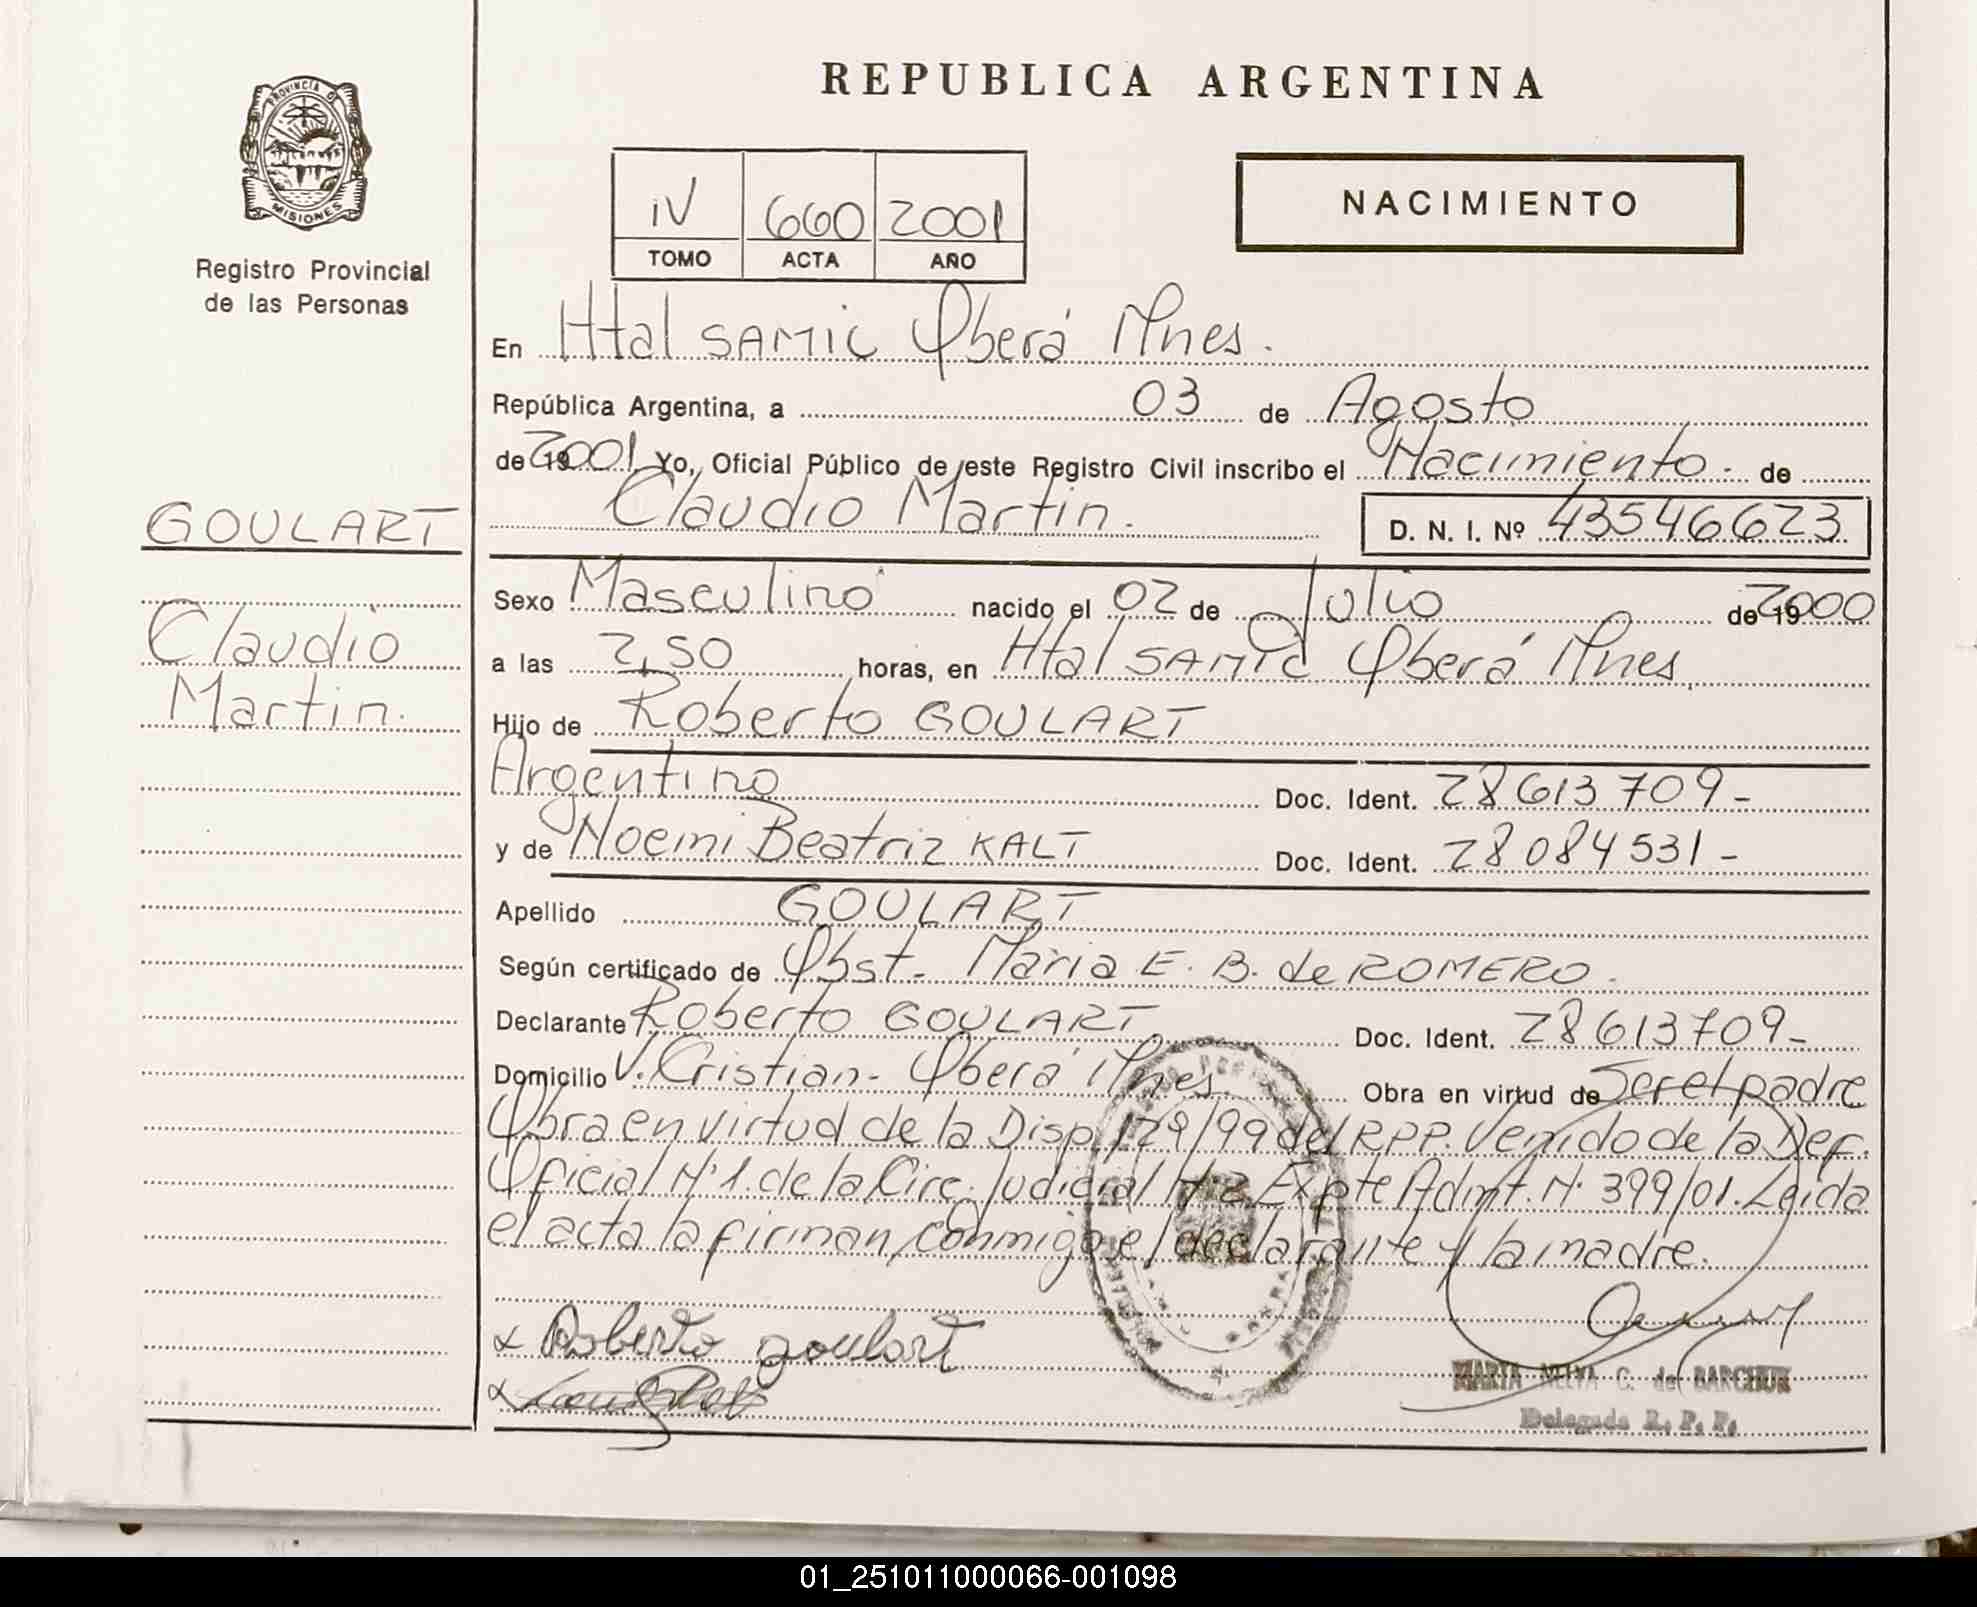 REPUBLICA ARGENTINA
PROVINCIA D
MISIONES
Registro Provincial
de las Personas
NACIMIENTO
IV 660 2001
TOMO ACTA AÑO
En Htal SAMIC Oberá Mnes.
República Argentina, a 03 de Agosto
de 19 2001 Yo, Oficial Público de este Registro Civil inscribo el Nacimiento. de
GOULART
Claudio Martin. D. N. I. Nº 43546623
Claudio
Martin.
Sexo Masculino nacido el 02 de Julio de 19 2000
a las 2,50 horas, en Htal SAMIC Oberá Mnes
Hijo de Roberto GOULART
Argentino Doc. Ident. 28613709-
y de Noemi Beatriz KALT Doc. Ident. 28084531-
Apellido GOULART
Según certificado de Obst. Maria E. B. de ROMERO.
Declarante Roberto GOULART Doc. Ident. 28613709-
Domicilio V. Cristian- Oberá Mnes Obra en virtud de Ser el padre
Obra en virtud de la Disp. 129/99 del RPP. Venido de la Def.
Oficial Nº1. de la Circ. Judicial Nº2 Expte Admt. N. 399/01. Leida
el acta la firman conmigo el declarante y la madre.
x Roberto goulart
x
MARIA NELVA C. de BARCHUK
Delegada R. P. P.
01_251011000066-001098